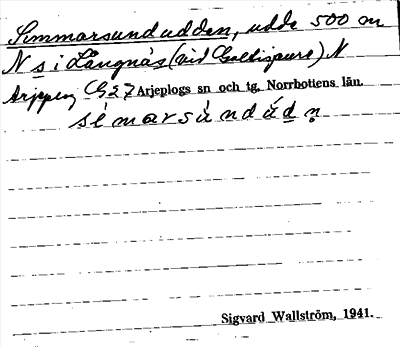 Simmarsundudden, udde 500 m
N s i Långnäs (vid Galtispuere) N
Arjeplog G 27 Arjeplogs sn och tg, Norrbottens län.
Sigvard Wallström, 1941.